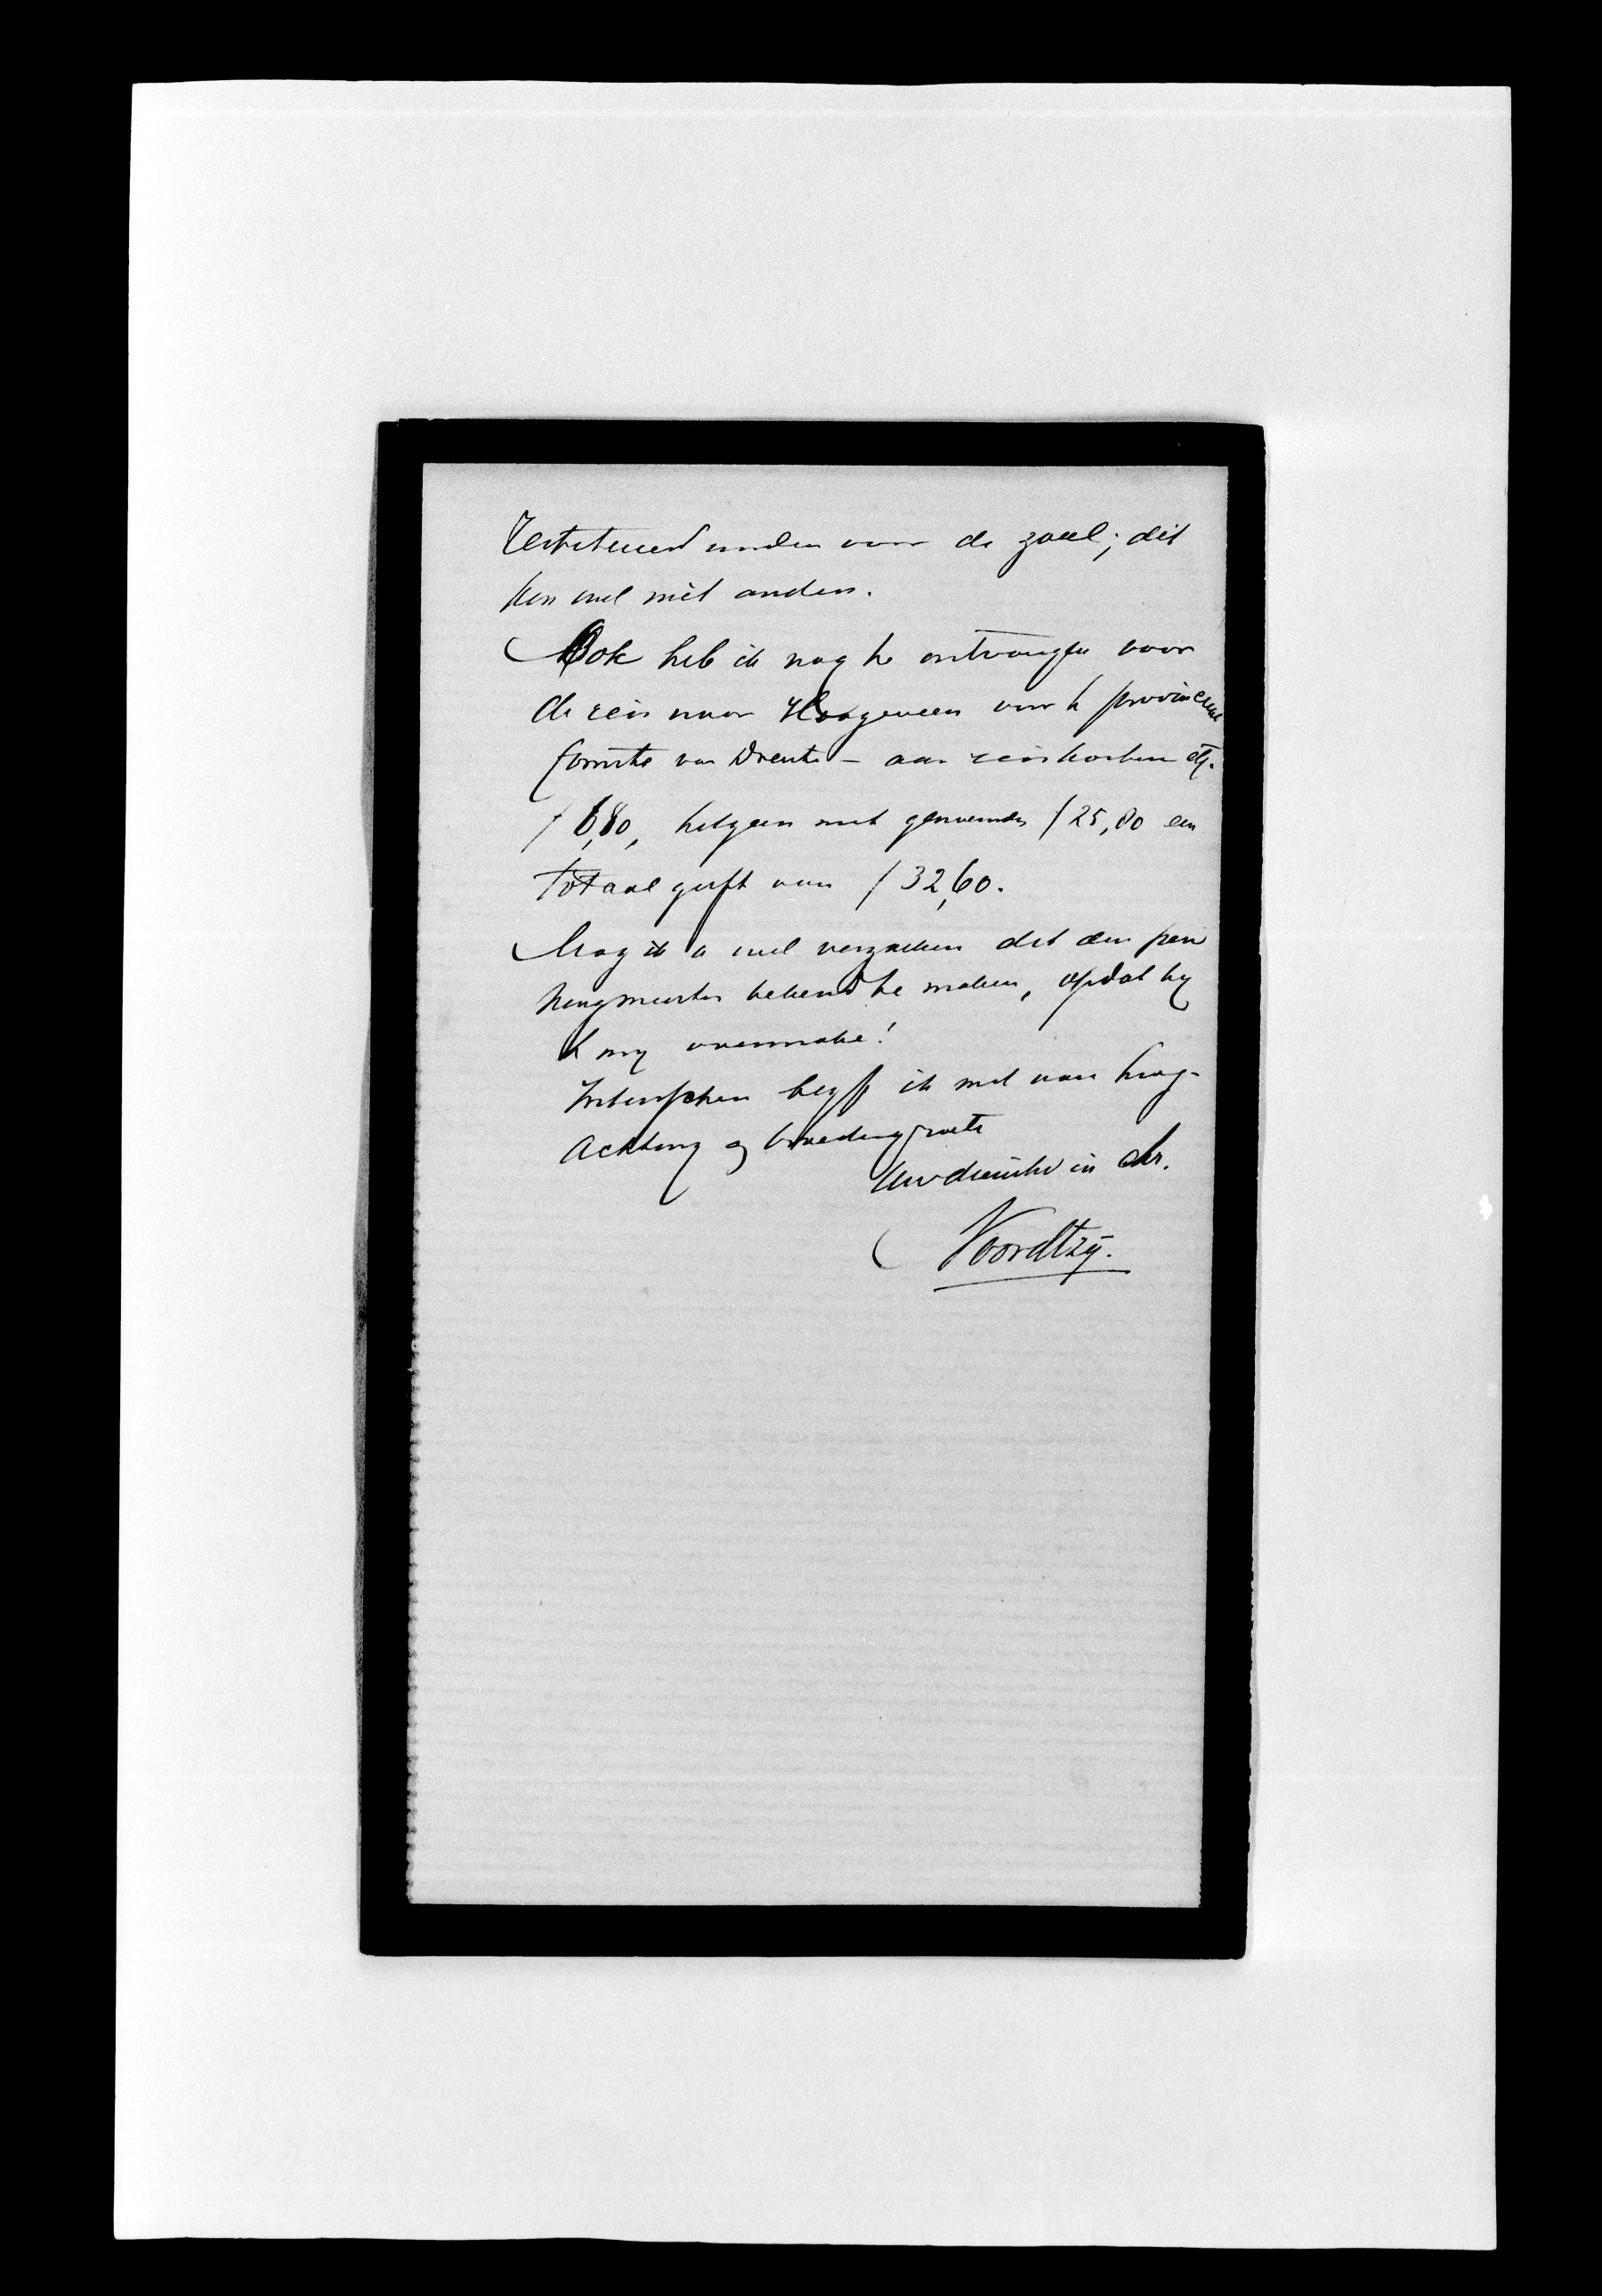 Restitueerd worden voor de zaal; dit
kon wel niet anders.
Ook heb ik nog te ontvangen voor
de reis naar Hoogeveen voor h provinciaal
Comité van Drente – aan reiskosten etc.
f 6,80, hetgeen met genoemde f 25,80 een
totaal geeft van f 32,60.
Mag ik u wel verzoeken dit den pen
ningmeester bekend te maken, opdat hij
't mij overmake!
Intusschen blijf ik met ware hoog-
achting & broedergroete
Uw dienstw in Chr.
Noordtzij.